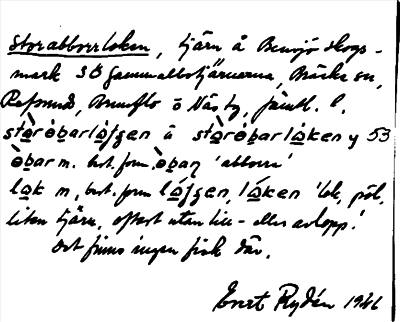 Storabborrloken, tjärn å Bensjö skogs-
mark SÖ Gammalbotjärnarna, Bräcke sn,
Refsunds, Brunflo o Näs tg, Jämtl. l.
stòrèbarlåjgen ä stòrèbarlåken y 53
èbar m. best. form. èbaṇ 'abborre'
låk m, best. form låjgen, låken 'lok, pöl,
liten tjärn, oftast utan till- eller avlopp.'
Det finns ingen fisk där.
Evert Rydén 1946